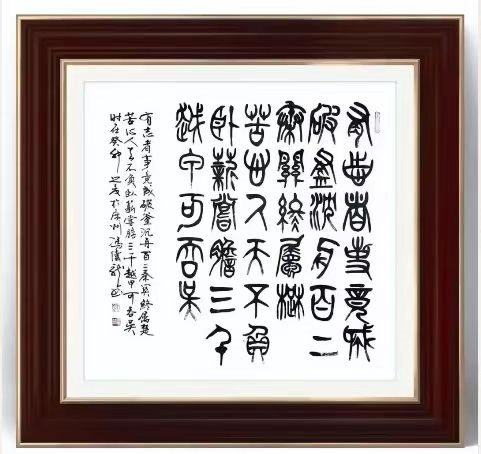 有志者事竟成
破釜沈舟百二
秦關終屬楚
苦心人天不負
臥薪嘗膽三千
越甲可吞吳
有志者事竟成破釜沉舟百二秦关终属楚
苦心人天不负卧薪尝胆三千越甲可吞吴
时在癸卯之夏于广州冯